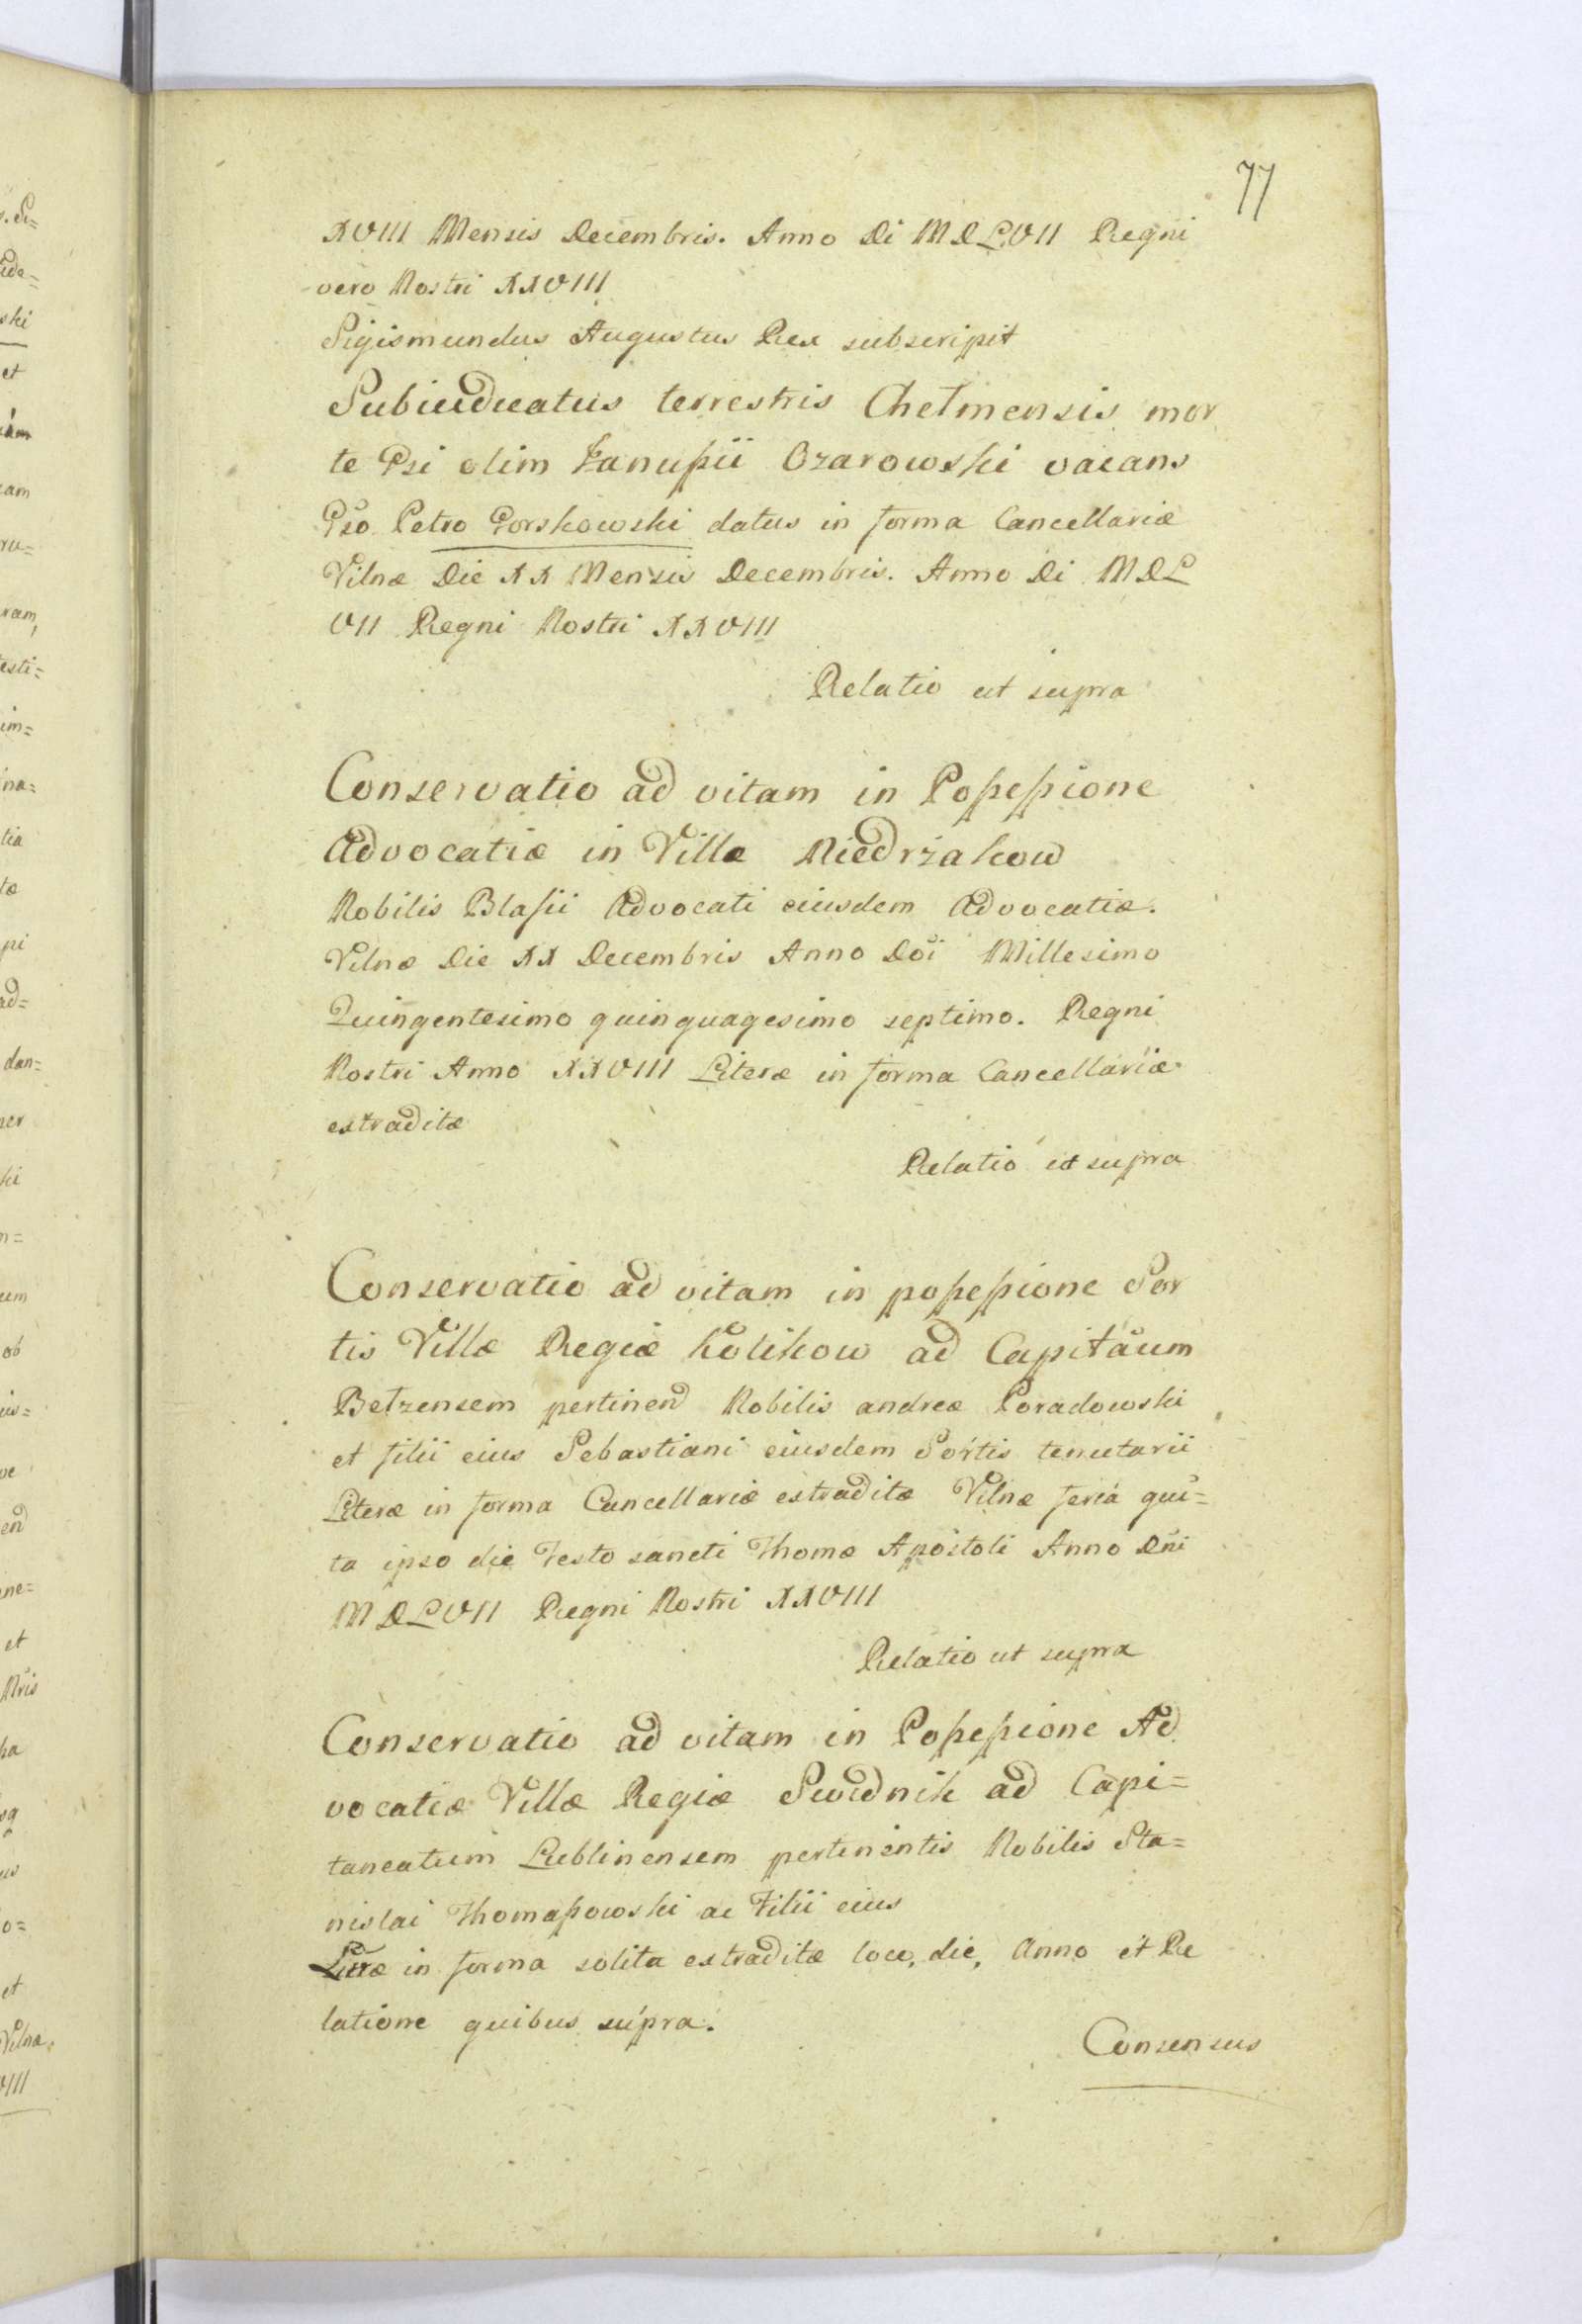 77
XVIII Mensis Decembris. Anno Di MDLVII Regni
vero Nostri XXVIII
Sigismundus Augustus Rex subscripit
Subiudicatus terrestris Chełmensis mor
te Gsi olim Hanussii Ozarowski vacans
Gso Petro Gorskowski datus in forma Cancellariæ
Vilnæ Die XX Mensis Decembris. Anno Di MDL
VII Regni Nostri XXVIII
Relatio ut supra
Conservatio ad vitam in Possessione
Advocatiæ in Villa Niedrżakow
Nobilis Blasii Advocati eiusdem Advocatiæ.
Vilnæ Die XX Decembris Anno Doi Millesimo
Quingentesimo quinquagesimo septimo. Regni
Nostri Anno XXVIII Literæ in forma Cancellariæ
extraditæ
Relatio ut supra
Conservatio ad vitam in possessione Sor
tis Villæ Regiæ Kolikow ad Capitaum
Bełzensem pertinend Nobilis andreæ Poradowski
et filii eius Sebastiani eiusdem Sortis tenutarii
Literæ in forma Cancellariæ extraditæ Vilnæ feria qui=
ta ipso die Festo sancti Thomæ Apostoli Anno Dni
MDLVII Regni Nostri XXVIII
Relatio ut supra
Conservatio ad vitam in Possessione Ad
vocatiæ Villæ Regiæ Swidnik ad Capi=
taneatum Lublinensem pertinentis Nobilis Sta=
nislai Thomassowski ac Filii eius
Litræ in forma solita extraditæ loco, die, Anno et Re
latione quibus supra.
Consensus